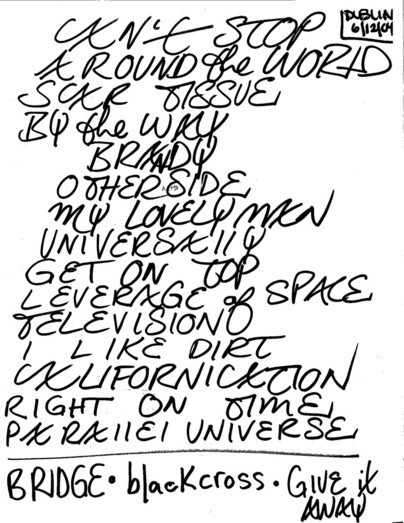 DUBLIN
6/12/04
CAN'T STOP
AROUND the WORLD
SCAR TISSUE
BY the WAY
BRANDY
OTHERSIDE
MY LOVELY MAN
UNIVERSALLY
GET ON TOP
LEVERAGE of SPACE
TELEVISION
I LIKE DIRT
CALIFORNICATION
RIGHT ON TIME
PARALLEL UNIVERSE
BRIDGE • blackcross • GIVE it
AWAY